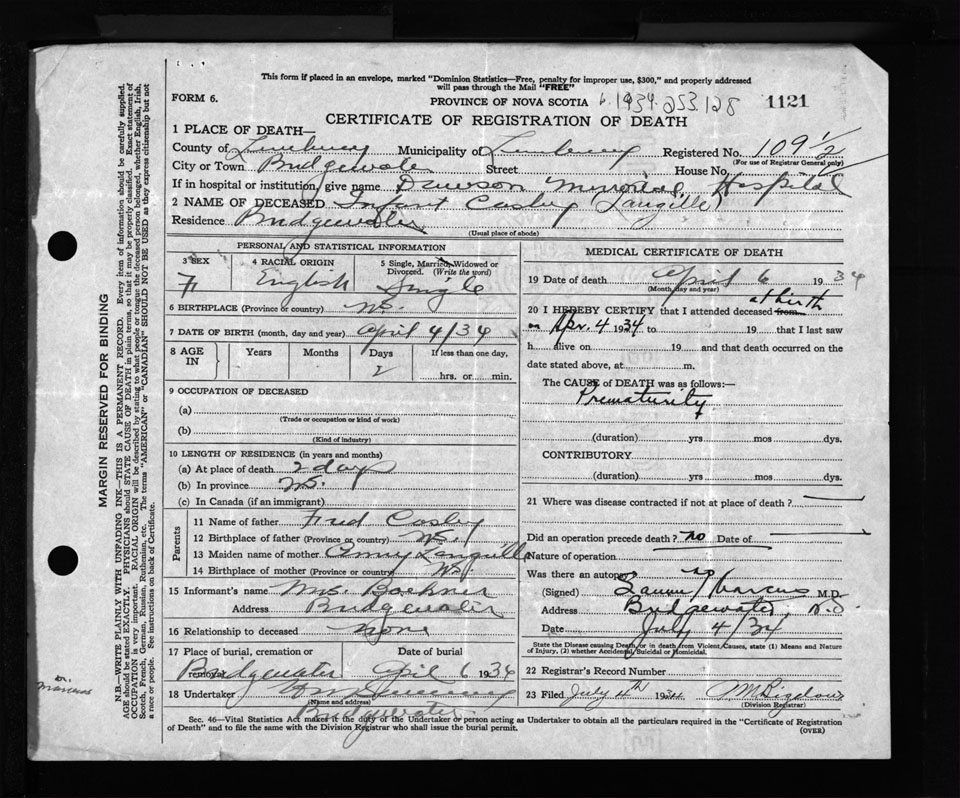 This form if placed in an envelope, marked "Dominion Statistics—Free, penalty for improper use, $300," and properly addressed
will pass through the Mail "FREE"
FORM 6.
PROVINCE OF NOVA SCOTIA
1934 253 128
1121
CERTIFICATE OF REGISTRATION OF DEATH
1 PLACE OF DEATH—
County of Lunenburg Municipality of Lunenburg Registered No. 109 1/2
(For use of Registrar General only)
City or Town Bridgewater Street House No.
If in hospital or institution, give name Dawson Memorial Hospital
2 NAME OF DECEASED Infant Cosby (Langille)
Residence Bridgewater
(Usual place of abode)
PERSONAL AND STATISTICAL INFORMATION
3 SEX
F
4 RACIAL ORIGIN
English
5 Single, Married, Widowed or
Divorced. (Write the word)
Single
6 BIRTHPLACE (Province or country) N.S.
7 DATE OF BIRTH (month, day and year) April 4/34
8 AGE
IN
Years Months Days
2
If less than one day,
hrs. or min.
9 OCCUPATION OF DECEASED
(a)
(Trade or occupation or kind of work)
(b)
(Kind of industry)
10 LENGTH OF RESIDENCE (in years and months)
(a) At place of death 2 days
(b) In province N.S.
(c) In Canada (if an immigrant)
Parents
11 Name of father Fred Cosby
12 Birthplace of father (Province or country) N.S.
13 Maiden name of mother Langille
14 Birthplace of mother (Province or country) N.S.
15 Informant's name Mrs. Boehner
Address Bridgewater
16 Relationship to deceased none
17 Place of burial, cremation or
removal
Date of burial
Bridgewater April 6 1934
18 Undertaker
(Name and address)
Bridgewater
MEDICAL CERTIFICATE OF DEATH
19 Date of death April 6 1934
(Month, day and year)
at birth
20 I HEREBY CERTIFY that I attended deceased from
on Apr. 4 1934 to 19 that I last saw
h alive on 19 and that death occurred on the
date stated above, at m.
The CAUSE of DEATH was as follows:—
Prematurity
(duration) yrs mos dys.
CONTRIBUTORY
(duration) yrs mos dys.
21 Where was disease contracted if not at place of death?
Did an operation precede death? no Date of
Nature of operation
Was there an autopsy no
(Signed) Marcus M.D.
Address Bridgewater, N.S.
Date July 4/34
State the Disease causing Death, or in death from Violent Causes, state (1) Means and Nature
of Injury, (2) whether Accidental, Suicidal or Homicidal.
22 Registrar's Record Number
23 Filed July 4th 1934 Bigelow
(Division Registrar)
Sec. 46—Vital Statistics Act makes it the duty of the Undertaker or person acting as Undertaker to obtain all the particulars required in the "Certificate of Registration
of Death" and to file the same with the Division Registrar who shall issue the burial permit.
(OVER)
MARGIN RESERVED FOR BINDING
N.B.—WRITE PLAINLY WITH UNFADING INK—THIS IS A PERMANENT RECORD. Every item of information should be carefully supplied.
AGE should be stated EXACTLY. PHYSICIANS should STATE CAUSE OF DEATH in plain terms, so that it may be properly classified. Exact statement of
OCCUPATION is very important. RACIAL ORIGIN will be described by stating to what people or tongue the deceased person belonged, whether English, Irish,
Scotch, French, German, Russian, Ruthenian, etc. The terms "AMERICAN" or "CANADIAN" SHOULD NOT BE USED as they express citizenship but not
a race or people. See instructions on back of Certificate.
Dr.
Marcus